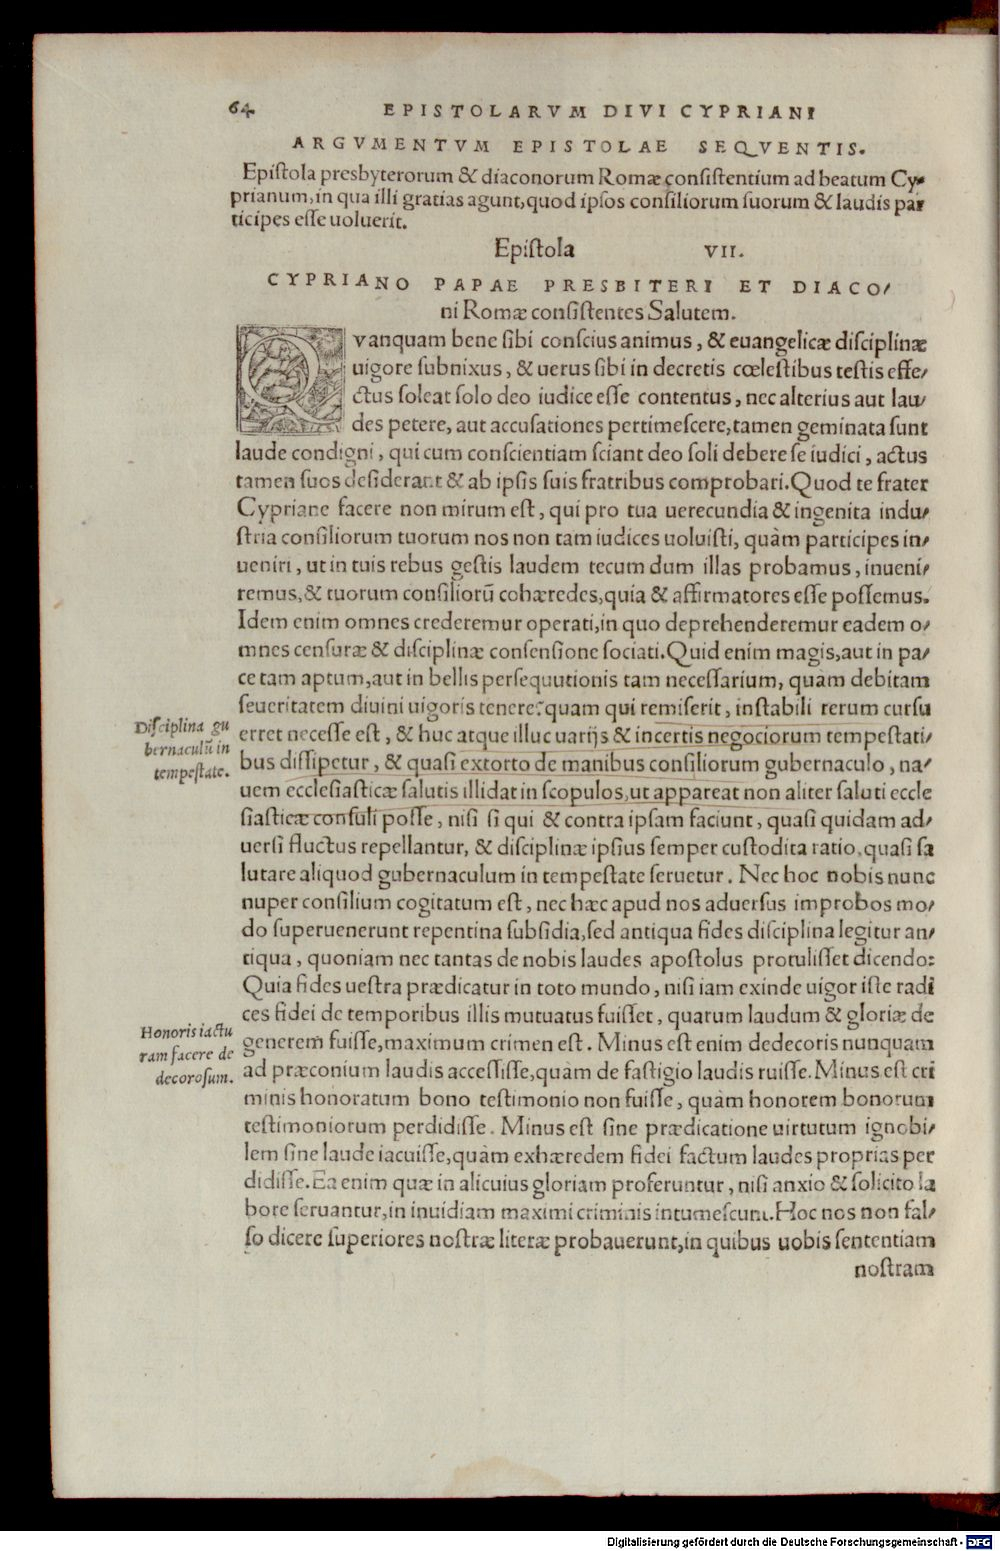 64 EPISTOLARVM DIVI CYPRIANI
ARGVMENTVM EPISTOLAE SEQVENTIS.
Epiſtola presbyterorum & diaconorum Romæ conſiſtentium ad beatum Cy-
prianum, in qua illi gratias agunt, quod ipſos conſiliorum ſuorum & laudis par
ticipes eſſe uoluerit.
Epiſtola VII.
CYPRIANO PAPAE PRESBITERI ET DIACO/
ni Romæ conſiſtentes Salutem.
Qvanquam bene ſibi conſcius animus, & euangelicæ diſciplinæ
uigore ſubnixus, & uerus ſibi in decretis cœleſtibus teſtis effe/
ctus ſoleat ſolo deo iudice eſſe contentus, nec alterius aut lau/
des petere, aut accuſationes pertimeſcere, tamen geminata ſunt
laude condigni, qui cum conſcientiam ſciant deo ſoli debere ſe iudici, actus
tamen ſuos deſiderant & ab ipſis ſuis fratribus comprobari. Quod te frater
Cypriane facere non mirum eſt, qui pro tua uerecundia & ingenita indu/
ſtria conſiliorum tuorum nos non tam iudices uoluiſti, quàm participes in/
ueniri, ut in tuis rebus geſtis laudem tecum dum illas probamus, inueni/
remus, & tuorum conſiliorũ cohæredes, quia & affirmatores eſſe poſſemus.
Idem enim omnes crederemur operati, in quo deprehenderemur eadem o/
mnes cenſuræ & diſciplinæ conſenſione ſociati. Quid enim magis, aut in pa/
ce tam aptum, aut in bellis perſequutionis tam neceſſarium, quàm debitam
ſeueritatem diuini uigoris tenere? quam qui remiſerit, inſtabili rerum curſu
erret neceſſe eſt, & huc atque illuc uarijs & incertis negociorum tempeſtati/
bus diſſipetur, & quaſi extorto de manibus conſiliorum gubernaculo, na/
uem eccleſiaſticæ ſalutis illidat in ſcopulos, ut appareat non aliter ſaluti eccle
ſiaſticæ conſuli poſſe, niſi ſi qui & contra ipſam faciunt, quaſi quidam ad/
uerſi fluctus repellantur, & diſciplinæ ipſius ſemper cuſtodita ratio, quaſi ſa
lutare aliquod gubernaculum in tempeſtate ſeruetur. Nec hoc nobis nunc
nuper conſilium cogitatum eſt, nec hæc apud nos aduerſus improbos mo/
do ſuperuenerunt repentina ſubſidia, ſed antiqua fides diſciplina legitur an/
tiqua, quoniam nec tantas de nobis laudes apoſtolus protuliſſet dicendo:
Quia fides ueſtra prædicatur in toto mundo, niſi iam exinde uigor iſte radi
ces fidei de temporibus illis mutuatus fuiſſet, quarum laudum & gloriæ de
generem fuiſſe, maximum crimen eſt. Minus eſt enim dedecoris nunquam
ad præconium laudis acceſſiſſe, quàm de faſtigio laudis ruiſſe. Minus eſt cri
minis honoratum bono teſtimonio non fuiſſe, quàm honorem bonorum
teſtimoniorum perdidiſſe. Minus eſt ſine prædicatione uirtutum ignobi/
lem ſine laude iacuiſſe, quàm exhæredem fidei factum laudes proprias per
didiſſe. Ea enim quæ in alicuius gloriam proferuntur, niſi anxio & ſolicito la
bore ſeruantur, in inuidiam maximi criminis intumeſcunt. Hoc nos non fal/
ſo dicere ſuperiores noſtræ literæ probauerunt, in quibus uobis ſententiam
noſtram
Diſciplina gu
bernaculũ in
tempeſtate.
Honoris iactu
ram facere de
decoroſum.
Digitalisierung gefördert durch die Deutsche Forschungsgemeinschaft - DFG